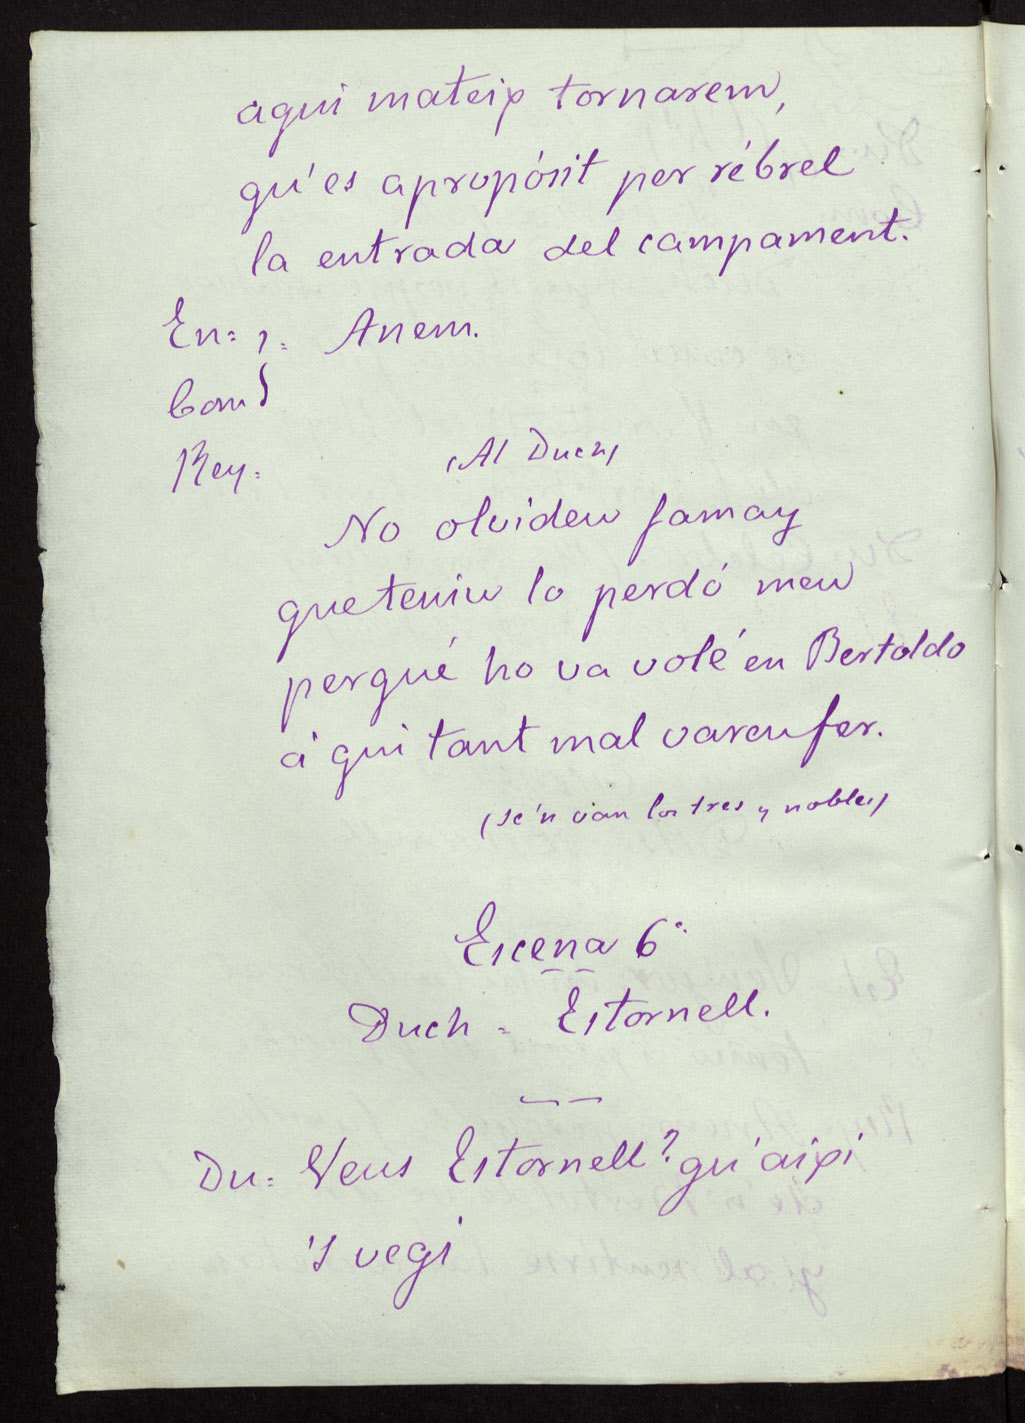 aquí mateix tornarem,
qu'es apropósit per rébrel
la entrada del campament.
En: }: Anem.
Com }
Rey: (Al Duch)
No olvideu jamay
que teniu lo perdó meu
perqué ho va volé en Bertoldo
á qui tant mal vareu fer.
(se'n van los tres y nobles)
Escena 6ª
Duch - Estornell.
Du: Veus Estornell? qu'aixi
's vegi